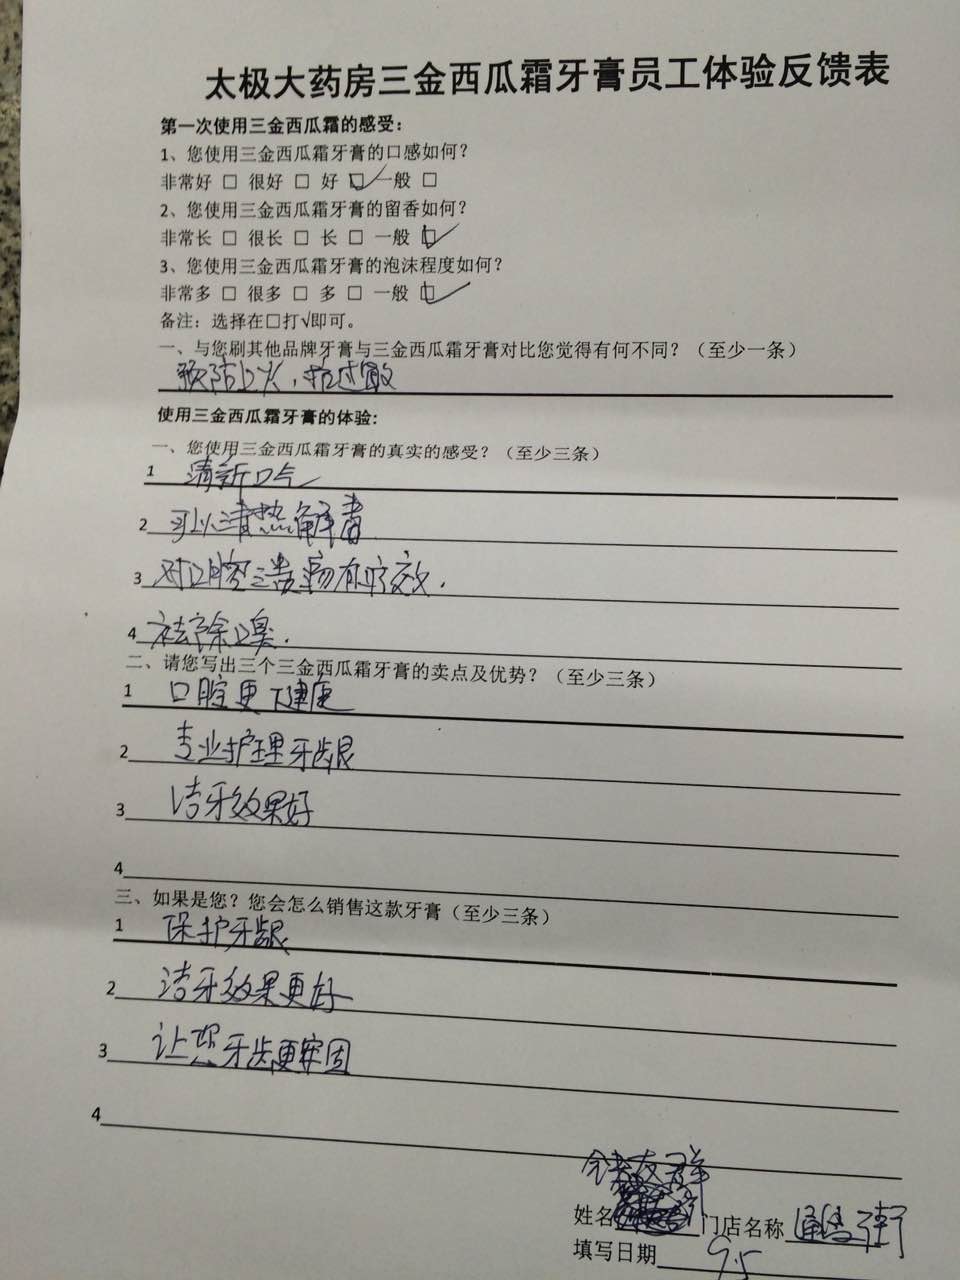 太极大药房三金西瓜霜牙膏员工体验反馈表
第一次使用三金西瓜霜的感受：
1、您使用三金西瓜霜牙膏的口感如何？
非常好 □ 很好 □ 好 ☑ 一般 □
2、您使用三金西瓜霜牙膏的留香如何？
非常长 □ 很长 □ 长 □ 一般 ☑
3、您使用三金西瓜霜牙膏的泡沫程度如何？
非常多 □ 很多 □ 多 □ 一般 ☑
备注：选择在□打√即可。
一、与您刷其他品牌牙膏与三金西瓜霜牙膏对比您觉得有何不同？（至少一条）
预防上火，抗过敏
使用三金西瓜霜牙膏的体验：
一、您使用三金西瓜霜牙膏的真实的感受？（至少三条）
1 清新口气
2 可以清热解毒
3 对口腔溃疡有疗效.
4 祛除口臭.
二、请您写出三个三金西瓜霜牙膏的卖点及优势？（至少三条）
1 口腔更健康
2 专业护理牙龈
3 洁牙效果好
4
三、如果是您？您会怎么销售这款牙膏（至少三条）
1 保护牙龈
2 洁牙效果更好
3 让您牙齿更牢固
4
姓名 门店名称
填写日期 9.5